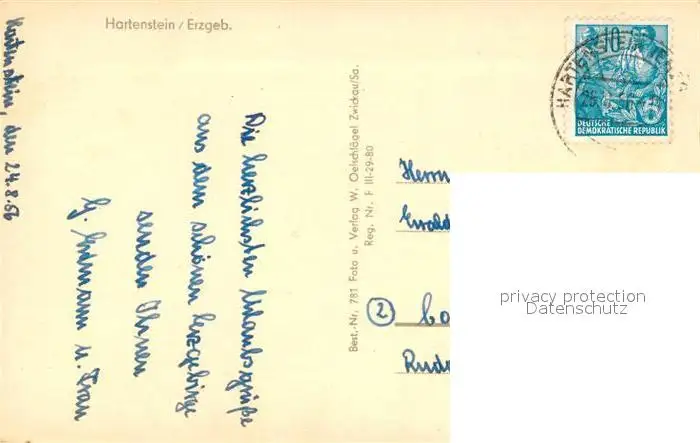 Hartenstein / Erzgeb.
Hartenstein, den 24.8.56
Die herzlichsten Urlaubsgrüße
aus dem schönen Erzgebirge
senden Ihnen
G. Erdmann u. Frau
Best.-Nr. 781 Foto u. Verlag W. Oelschlägel Zwickau/Sa.
Reg. Nr. F III-29-80
10
DEUTSCHE
DEMOKRATISCHE REPUBLIK
HARTENSTEIN
Herrn
Ewald
2
Rud
privacy protection
Datenschutz